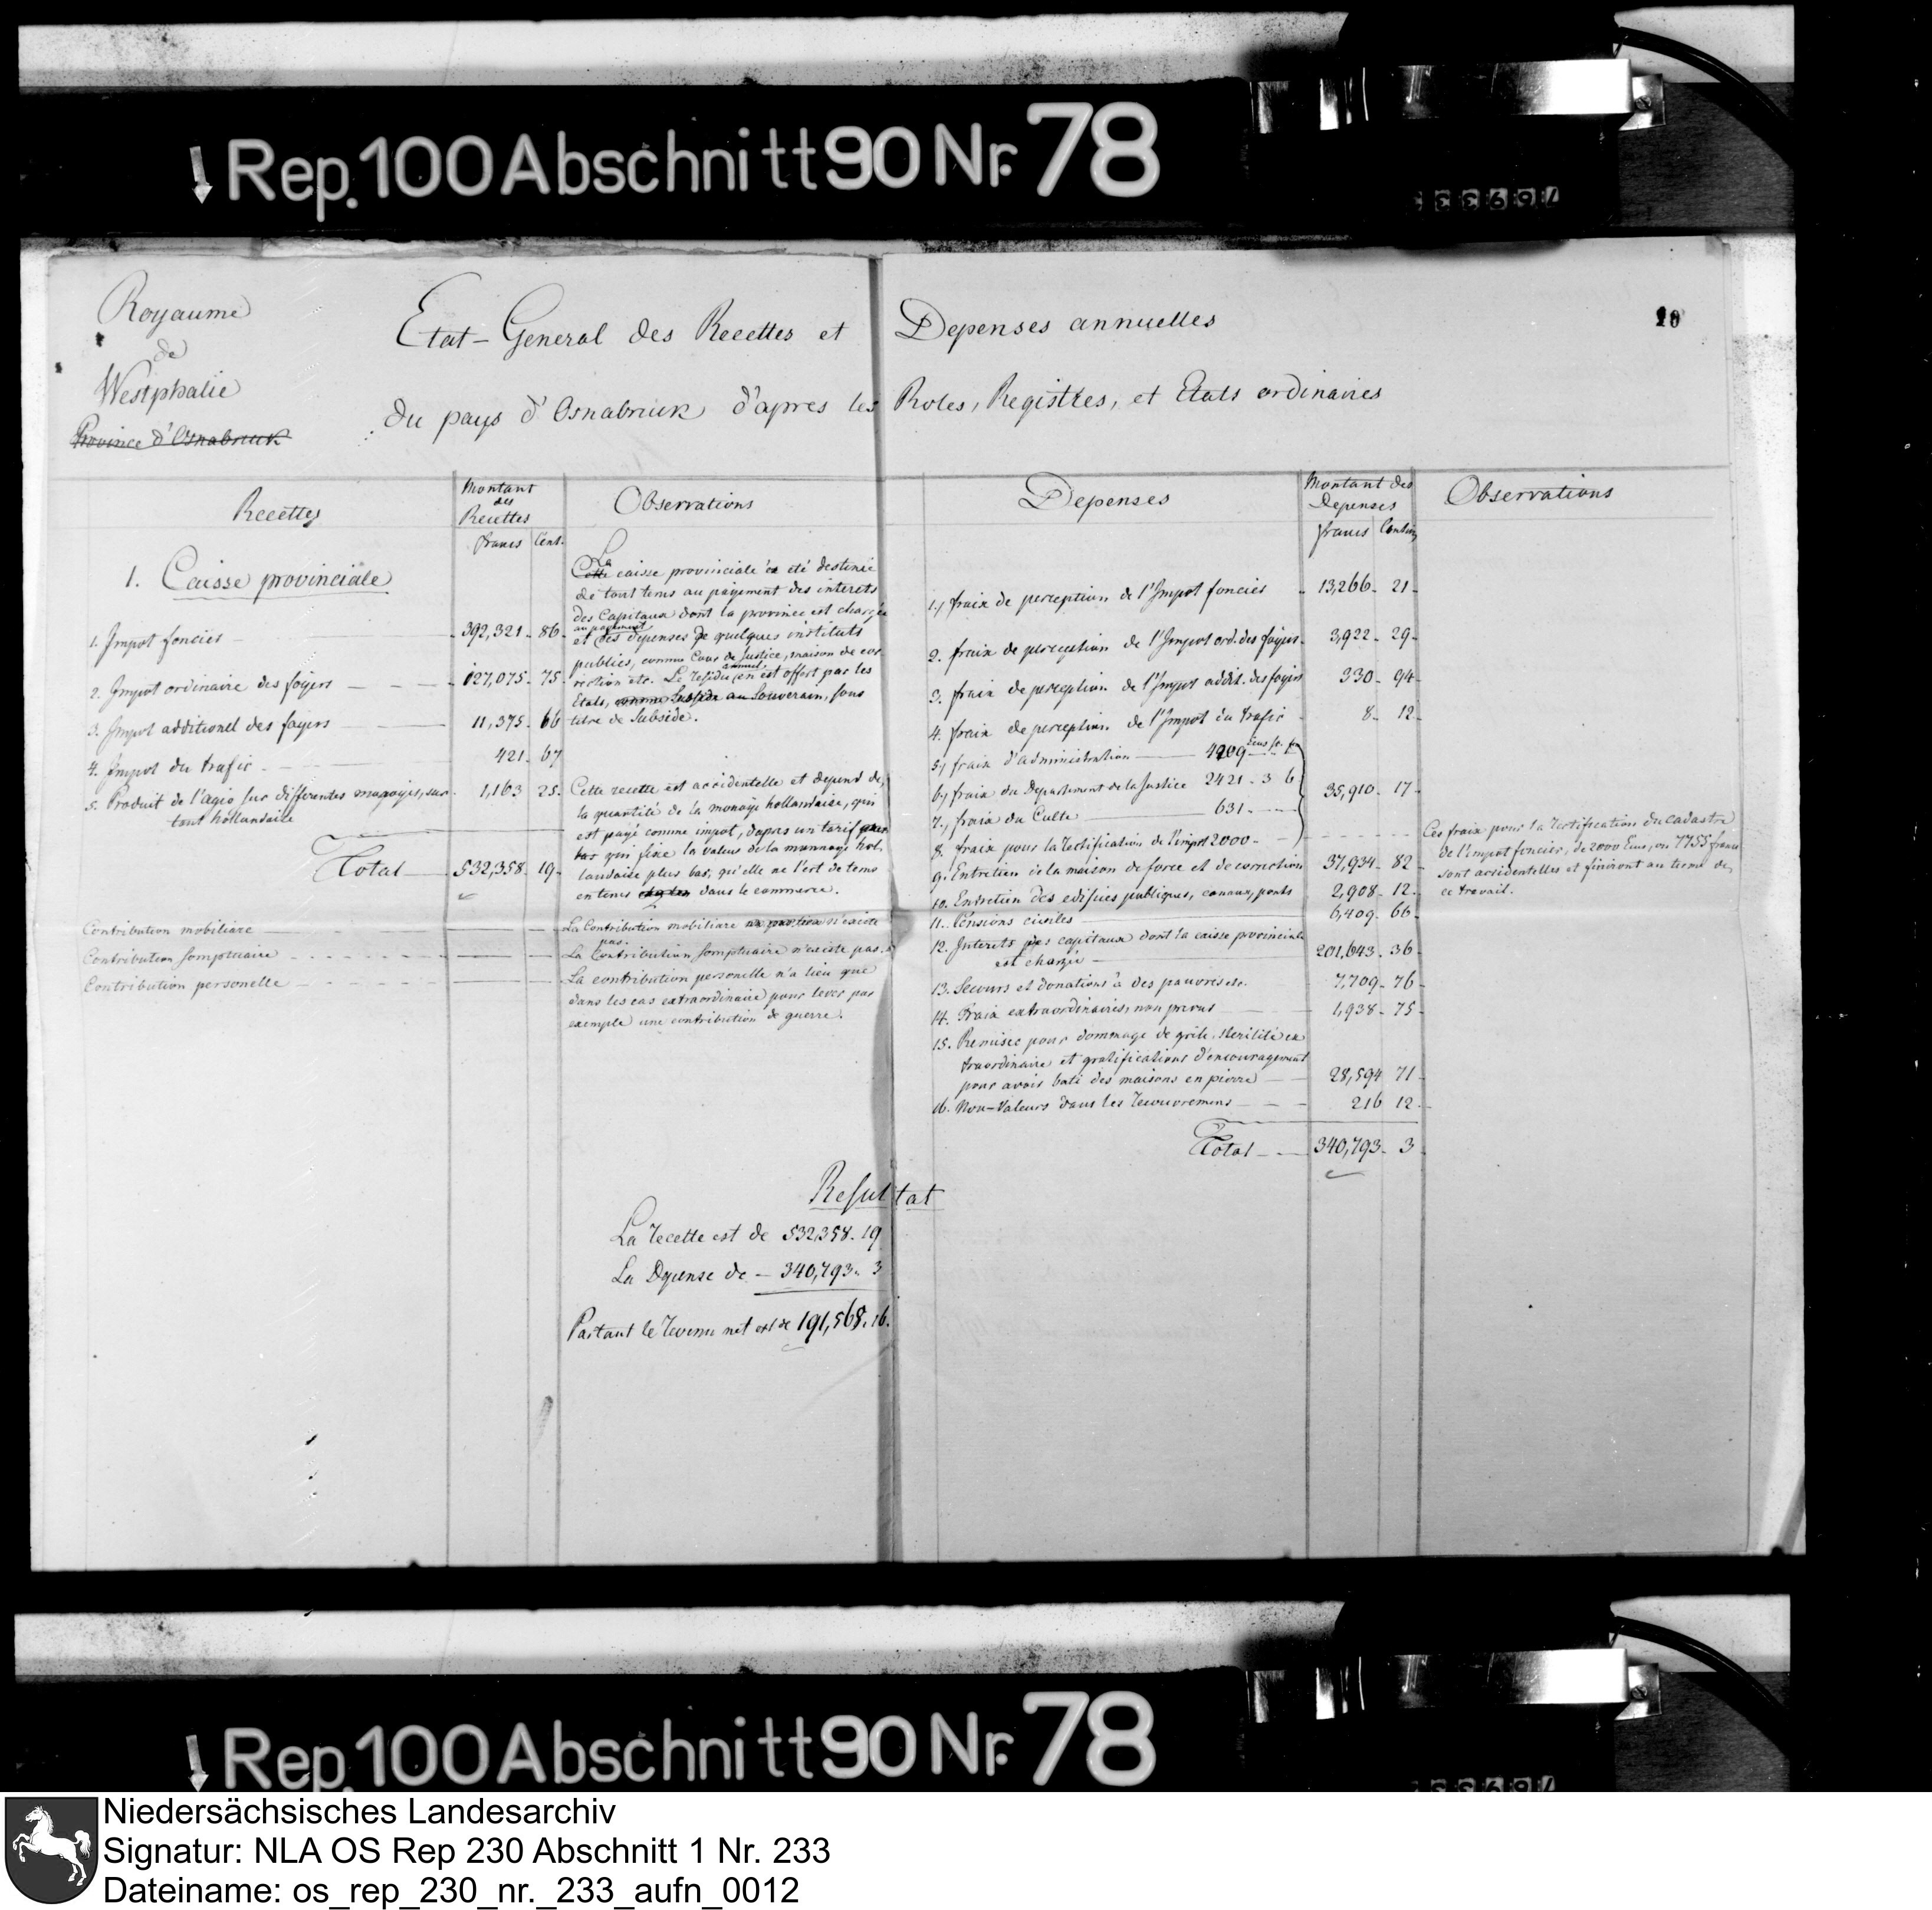 Rep. 100 Abschnitt 90 Nr. 78
Royaume
de
Westphalie
Province d'Osnabruck
Etat-General des Recettes et Depenses annuelles
du pays d'Osnabruck d'apres les Roles, Registres, et Etats ordinaires
10
Recettes
Montant
des
Recettes
francs Cent.
Observations
1. Caisse provinciale
1. Impot foncier 392,321. 86.
2. Impot ordinaire des foyers 127,075. 75.
3. Impot additionel des foyers 11,375. 66
4. Impot du trafic 421. 67
5. Produit de l'agio sur differentes monoyes, sur 1,163 25.
tout hollandaise
Total 532,358. 19.
Contribution mobiliaire
Contribution somptuaire
Contribution personelle
La
Cette caisse provinciale a été destinée
de tout tems au payement des interets
des Capitaux dont la province est chargée
au payement
et des depenses de quelques instituts
publics, comme Cour de Justice, maison de cor
annuel
rection etc. Le residu en est offert par les
Etats, comme Subside au Souverain, sous
titre de Subside.
Cette recette est accidentelle et depend de
la quantité de la monoye hollandaise, qui
est payé comme impot, d'apres un tarif
bas qui fixe la valeur de la monnaye hol-
landaise plus bas, qu'elle ne l'est de tems
en tems dans le commerce.
La Contribution mobiliaire n'existe
pas.
La Contribution somptuaire n'existe pas.
La contribution personelle n'a lieu que
dans les cas extraordinaire pour lever par
exemple une contribution de guerre.
Depenses
Montant des
Depenses
francs Centim
Observations
1., fraix de perception de l'Impot foncier 13,266. 21.
2. fraix de perception de l'Impot ord. des foyers. 3,922. 29.
3. fraix de perception de l'Impot addit. des foyers 330. 94.
4. fraix de perception de l'Impot du trafic 8. 12.
5., fraix d'administration 4209
6., fraix du Departement de la Justice 2421. 3 6
35,910. 17.
7., fraix du Culte 631.
8. fraix pour la rectification de l'impot 2000.
9. Entretien de la maison de force et de correction 37,934. 82.
10. Entretien des edifices publiques, canaux, ponts 2,908. 12.
11. Pensions civiles 6,409. 66.
12. Interets des capitaux dont la caisse provinciale
est chargée 201,643. 36.
13. Secours et donations à des pauvres etc. 7,709. 76.
14. Fraix extraordinaires non prevus 1,938. 75.
15. Remises pour dommage de grêle, sterilité ex
traordinaire et gratifications d'encouragement
pour avoir bati des maisons en pierre 28,594 71.
16. Non-Valeurs dans les recouvremens 216 12.
Total 340,793. 3
Ces fraix pour la rectification du cadastre
de l'impot foncier, de 2000 Ecus, ou 7755 francs
sont accidentelles et finiront au terme de
ce travail.
Resultat
La recette est de 532,358. 19
La Depense de 340,793. 3
Partant le revenu net est de 191,565. 16.
Rep. 100 Abschnitt 90 Nr. 78
Niedersächsisches Landesarchiv
Signatur: NLA OS Rep 230 Abschnitt 1 Nr. 233
Dateiname: os_rep_230_nr._233_aufn_0012